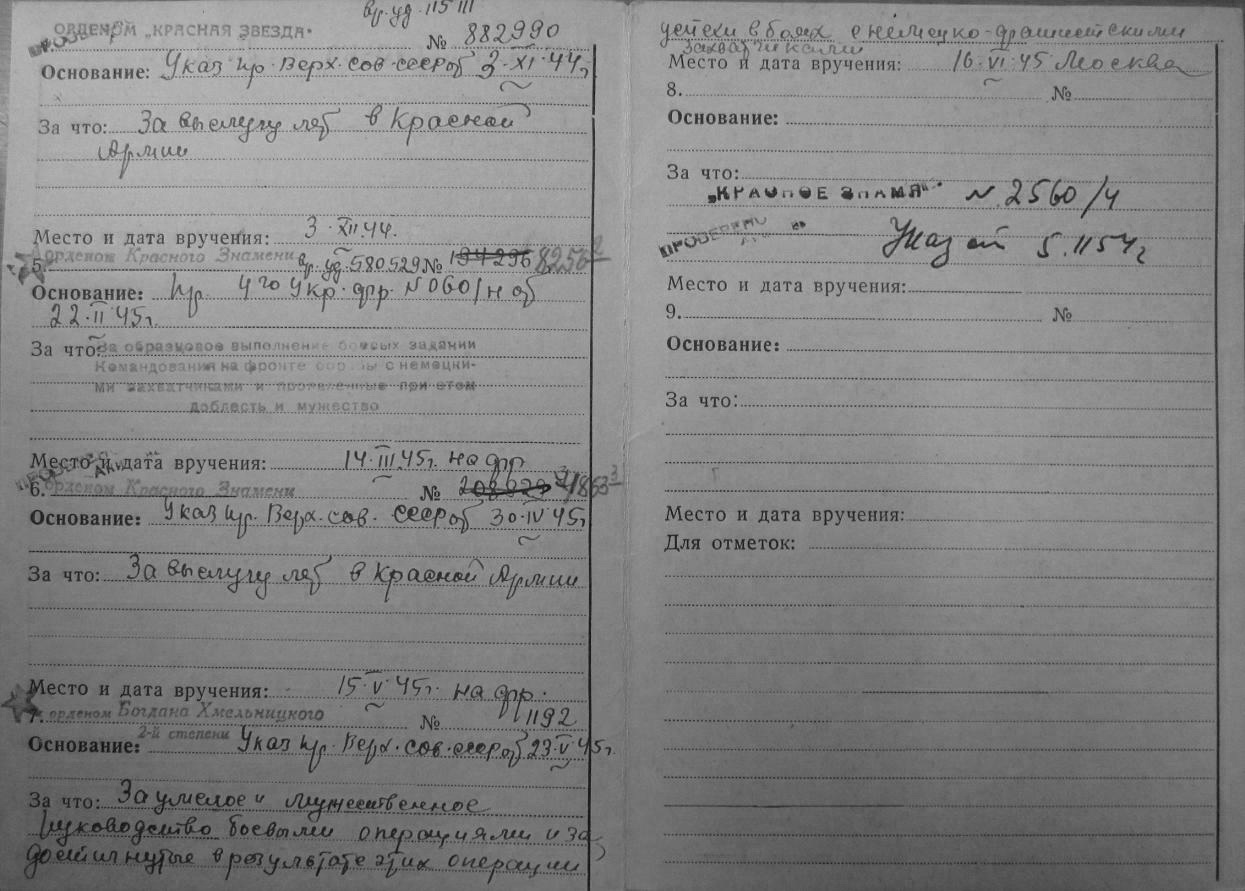 вр. уд. 115111
ОРДЕНОМ „КРАСНАЯ ЗВЕЗДА"
ПРОВЕРЕНО
№ 882990
Основание: Указ пр. Верх. сов. ссср от 3·XI·44г.
За что: За выслугу лет в Красной
Армии
Место и дата вручения: 3·XII·44.
5. орденом Красного Знамени вр. уд. 580529 № 194296 8256/2
Основание: Пр 4го Укр. фр. № 060/н от
22·II·45г.
За что: За образцовое выполнение боевых заданий
Командования на фронте борьбы с немецки-
ми захватчиками и проявленные при этом
доблесть и мужество
Место и дата вручения: 14·III·45г. на фр
ПРОВЕРЕНО
6. орденом Красного Знамени №
Основание: Указ пр. Верх. сов. ссср от 30·IV·45г
За что: За выслугу лет в Красной Армии
Место и дата вручения: 15·V·45г. на фр.
7. орденом Богдана Хмельницкого № 1192
2-й степени
Основание: Указ пр. Верх. сов. ссср от 23·V·45г.
За что: За умелое и мужественное
руководство боевыми операциями и за
достигнутые в результате этих операций
успехи в боях с немецко-фашистскими
захватчиками
Место и дата вручения: 16·VI·45 Москва
8. №
Основание:
За что:
„КРАСНОЕ ЗНАМЯ" № 2560/4
ПРОВЕРЕНО
Указ от 5.11 54г
Место и дата вручения:
9. №
Основание:
За что:
Место и дата вручения:
Для отметок: